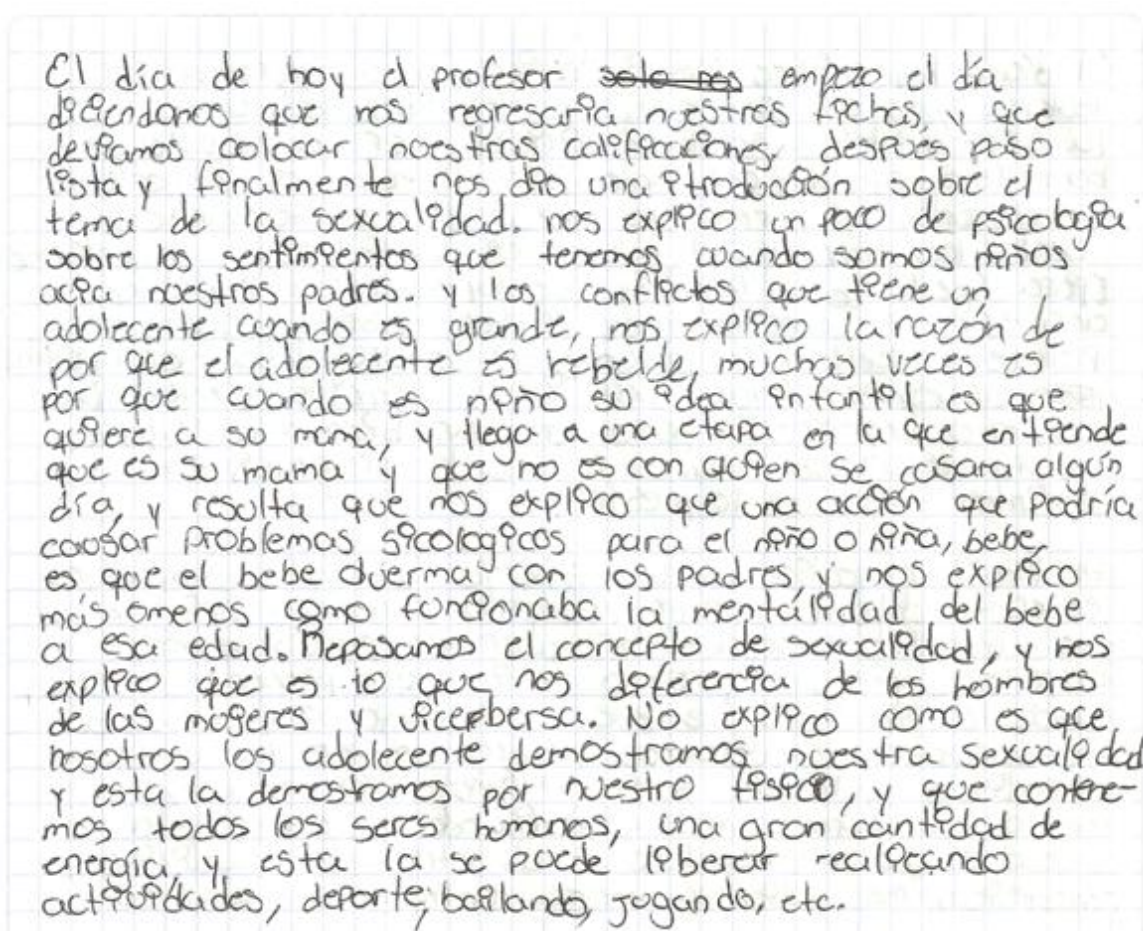 El día de hoy el profesor solo nos empezo el día
diciendonos que nos regresaria nuestras fichas, y que
deviamos colocar nuestras calificaciones, después paso
lista y finalmente nos dio una itroducción sobre el
tema de la sexualidad. nos explico un poco de psicologia
sobre los sentimientos que tenemos cuando somos niños
acia nuestros padres. y los conflictos que tiene un
adolecente cuando es grande, nos explico la razón de
por que el adolecente es rebelde, muchas veces es
por que cuando es niño su idea infantil es que
quiere a su mamá, y llega a una etapa en la que entiende
que es su mama y que no es con quien se casara algún
día, y resulta que nos explico que una acción que podría
causar problemas sicologicos para el niño o niña, bebe,
es que el bebe duerma con los padres, y nos explico
más omenos como funcionaba la mentalidad del bebe
a esa edad. Repasamos el concepto de sexualidad, y nos
explico que es lo que nos diferencia de los hombres
de las mujeres y vicerbersa. No explico como es que
nosotros los adolecente demostramos nuestra sexualidad
y esta la demostramos por nuestro fisico, y que contene-
mos todos los seres humanos, una gran cantidad de
energía, y esta la se puede liberar realicando
actividades, deporte, bailando, jugando, etc.